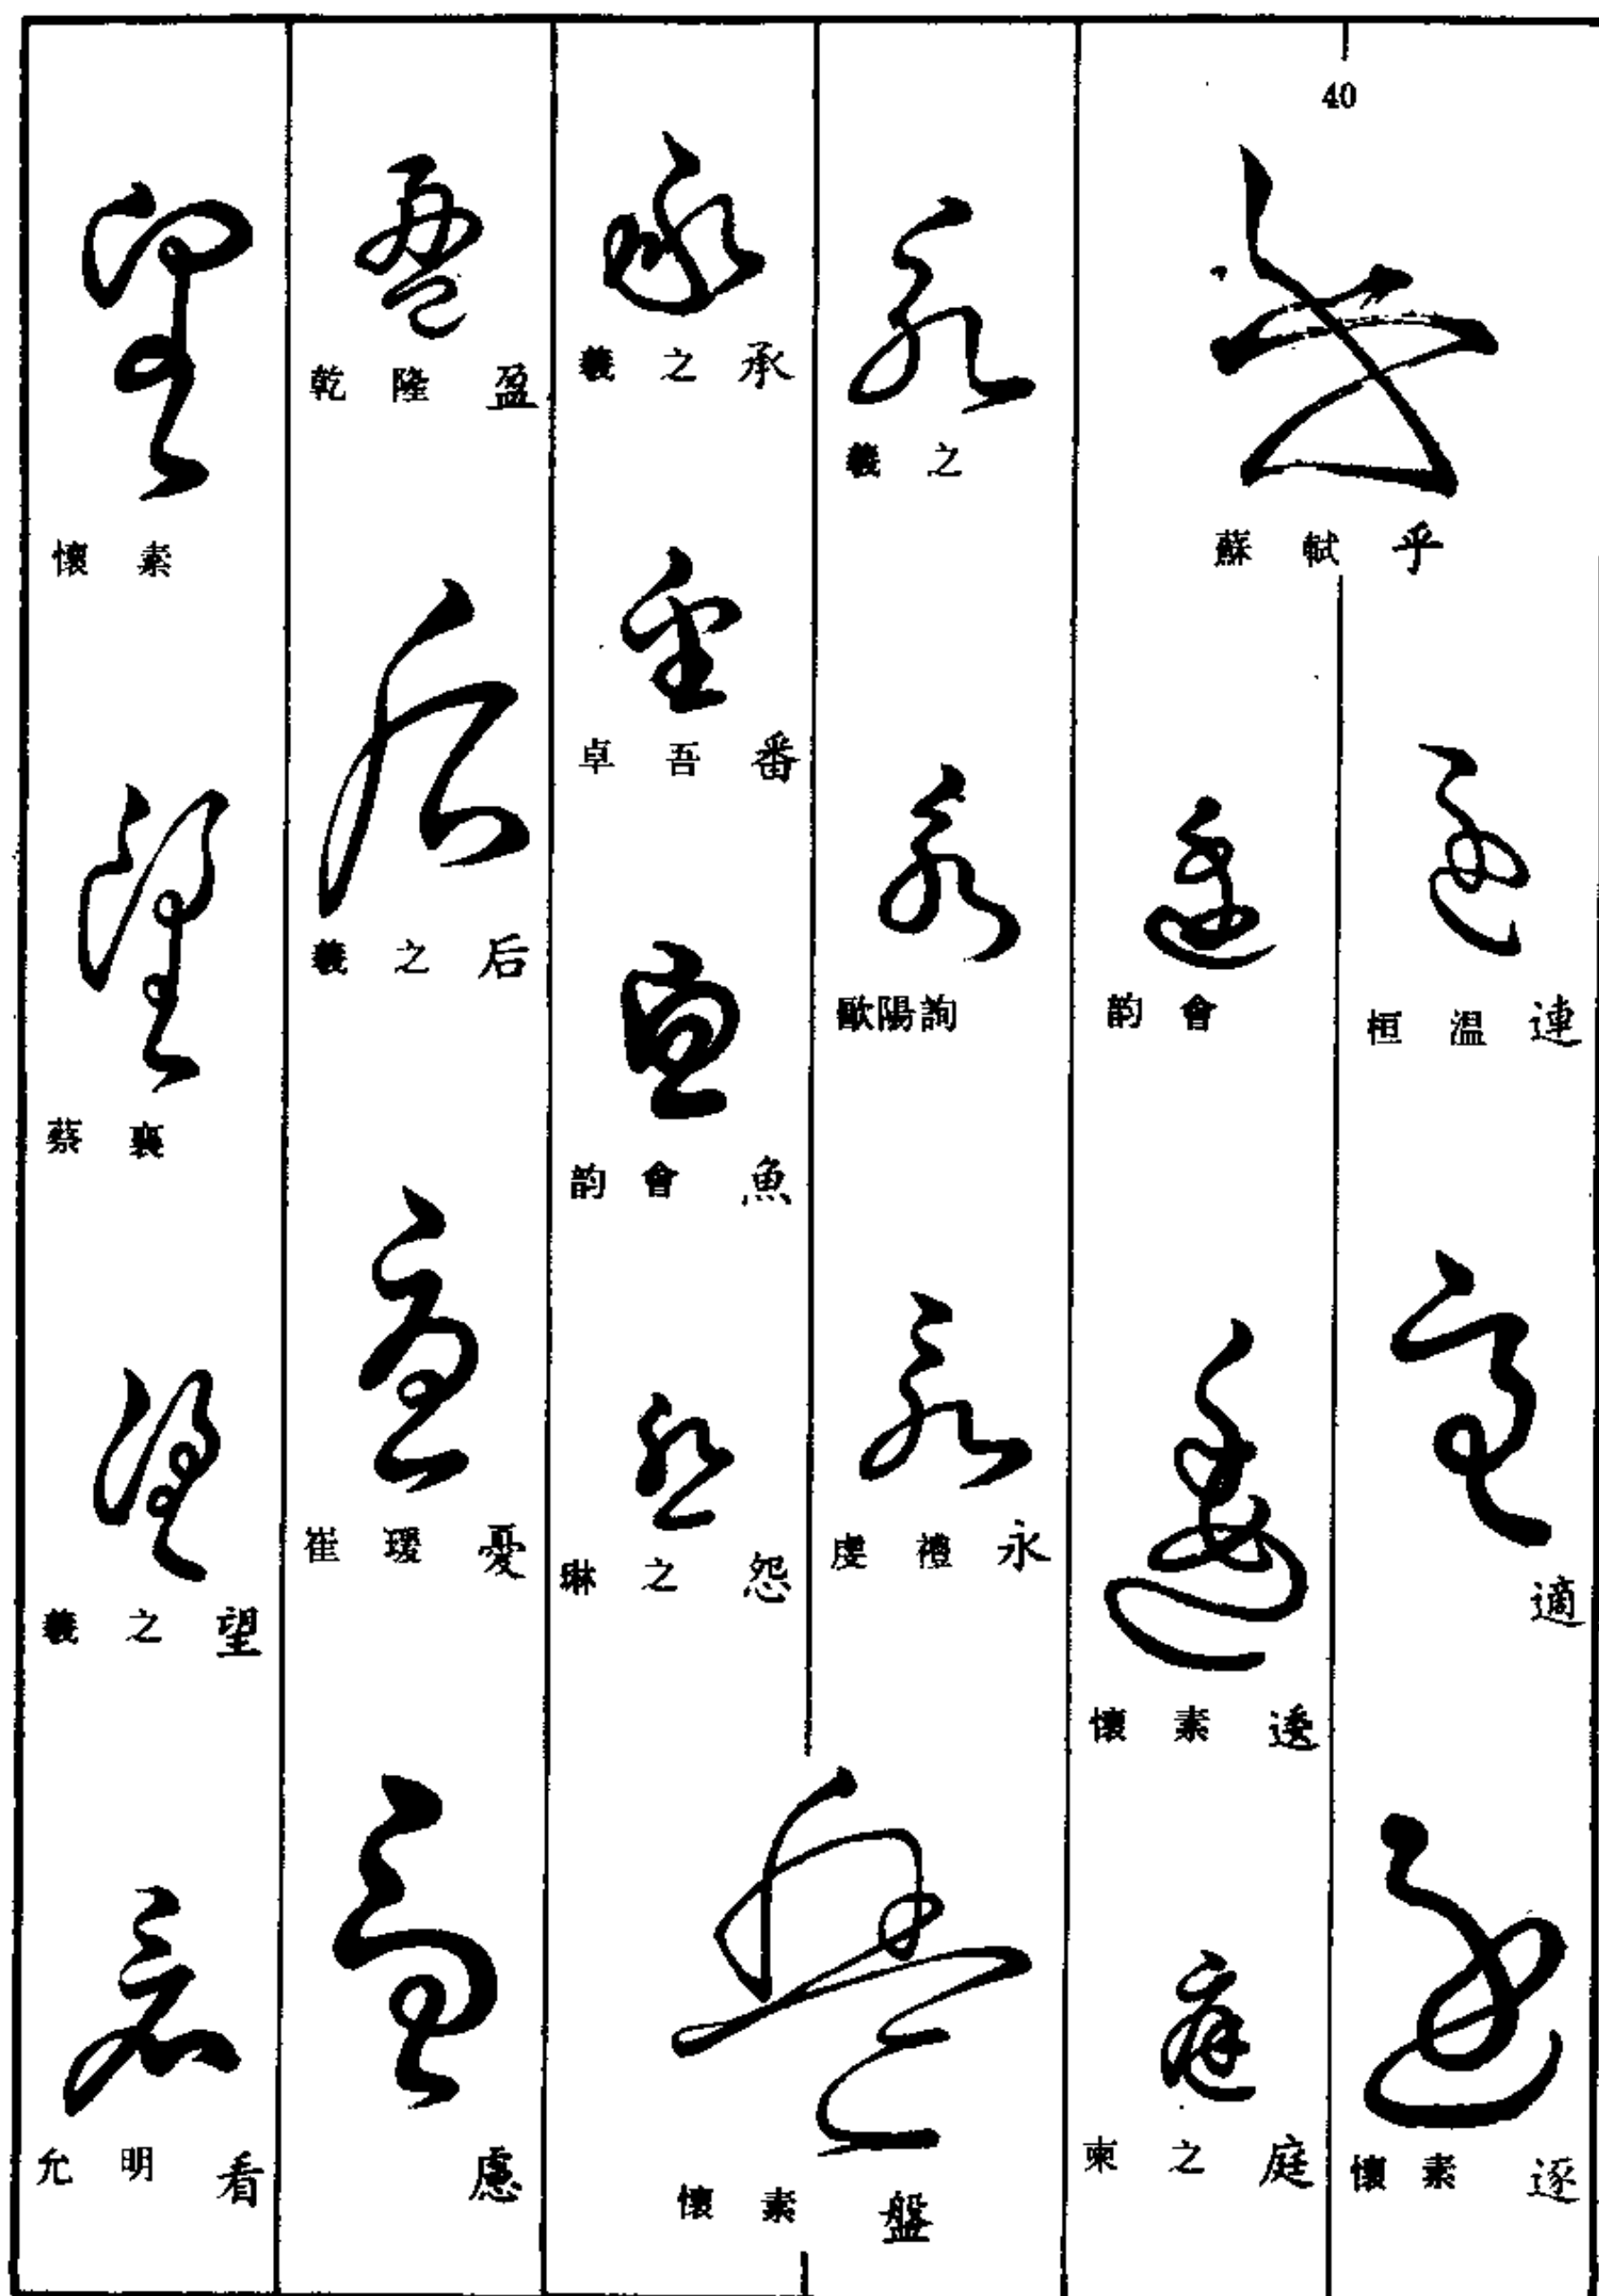 40
蘇軾乎
桓温連
適
懷素逐
韵會
懷素逶
柬之庭
羲之
歐陽詢
虔禮永
懷素盤
羲之承
卓吾番
韵會魚
琳之怨
乾隆盈
羲之后
崔瑗憂
慮
懷素
蔡襄
羲之望
允明看